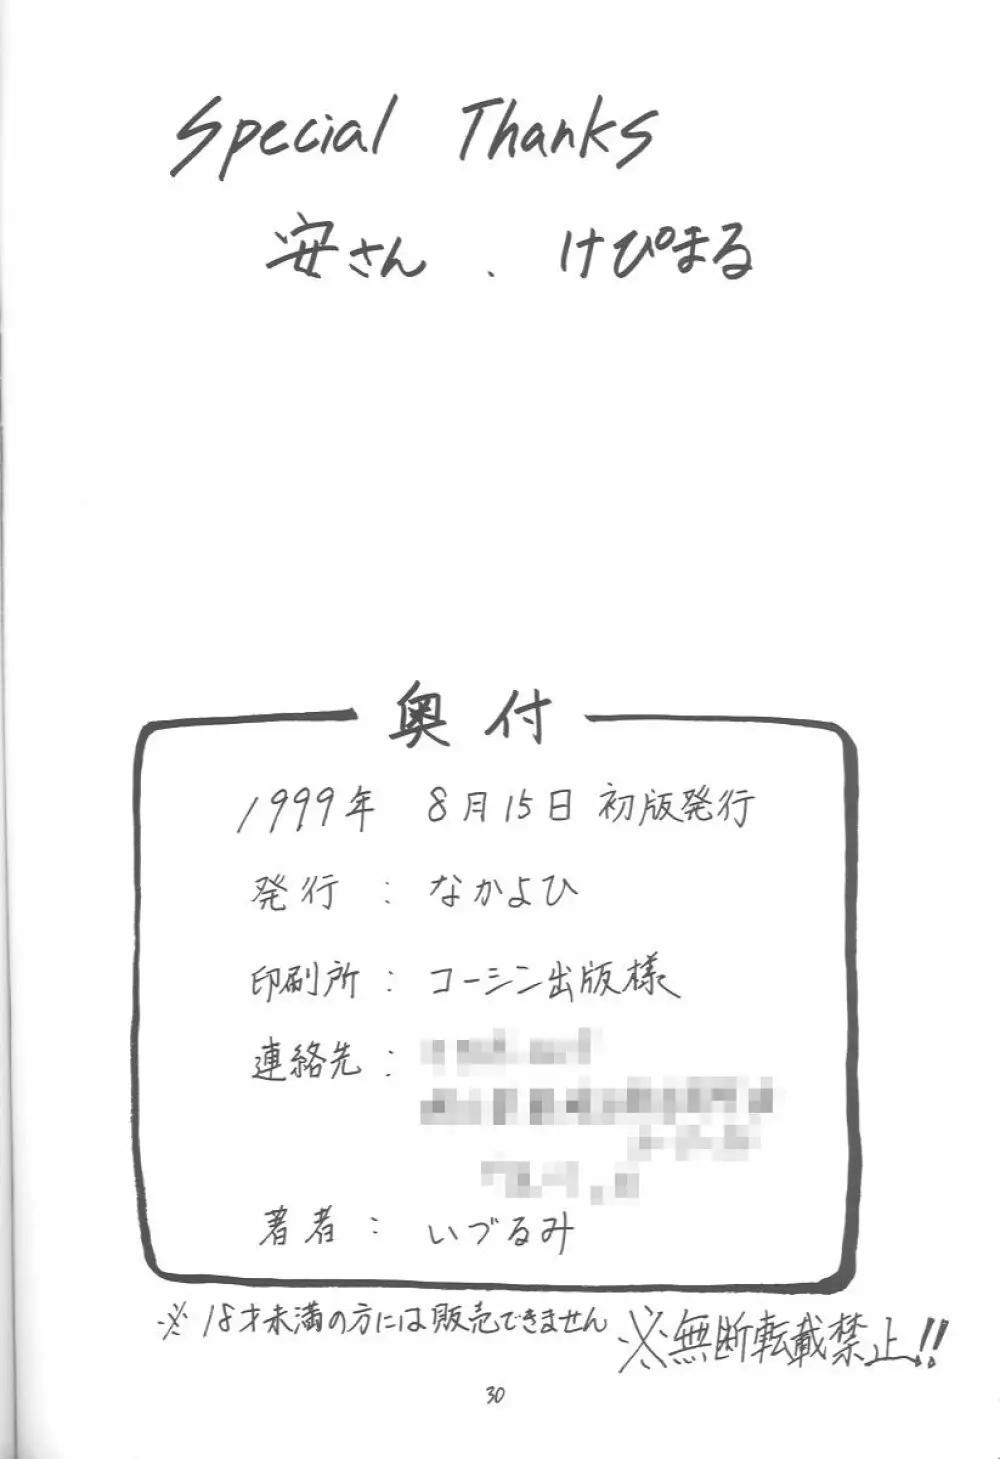 Special Thanks
安さん 、 けぴまる
奥付
1999年 8月15日 初版発行
発行 : なかよひ
印刷所 : コーシン出版様
連絡先 :
著者 : いづるみ
※ 18才未満の方には販売できません
※無断転載禁止!!
30